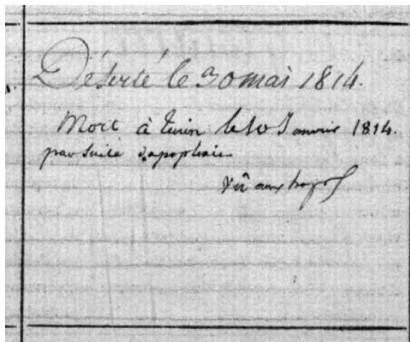 Déserté le 30 mai 1814.
Mort à Turin le 10 Janvier 1814.
par suite d'apoplexie